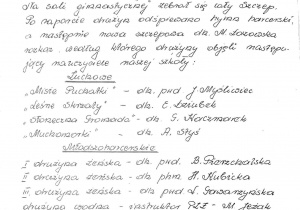 Na sali gimnastycznej zebrał się cały Szczep.
Po raporcie drużyna odśpiewano hymn harcerski,
a następnie nowa szczepowa dh. M. Sokowska
rozkaz, według którego drużyny objęli następu-
jący nauczyciele naszej szkoły:
Zuchowe
„Misie Puchatki" - dh. pwd J. Myśliwiec
„Leśne Skrzaty" - dh. E. Dziubek
„Słoneczna Gromada" - dh. G. Kaczmarek
„Muchomorki" - dh. A. Styś
Młodszoharcerskie
I drużyna żeńska - dh. pwd. B.
II drużyna żeńska - dh. phm. A. Kubicka
III drużyna żeńska - dh. pwd. L.
drużyna - instruktor PCK - M.